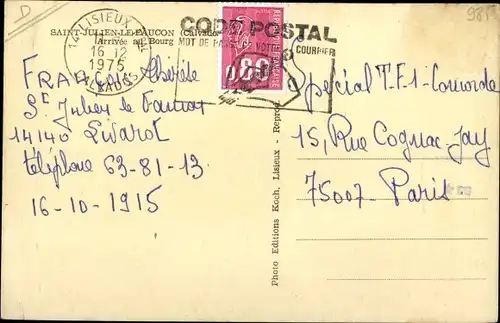 D
SAINT-JULIEN-LE-FAUCON (Calvados)
L'Arrivée au Bourg
14 LISIEUX
16 12
1975
CALVADOS
CODE POSTAL
MOT DE PASSE
VOTRE
COURRIER
0.80
FRANÇAISE
FRANÇOIS
St Julien le Faucon
14140 Livarot
téléphone 63-81-13
16-10-1915
Spécial T.F.1-Concorde
15, Rue Cognac-Jay
75007- Paris
Photo Editions Koch, Lisieux - Reprod.